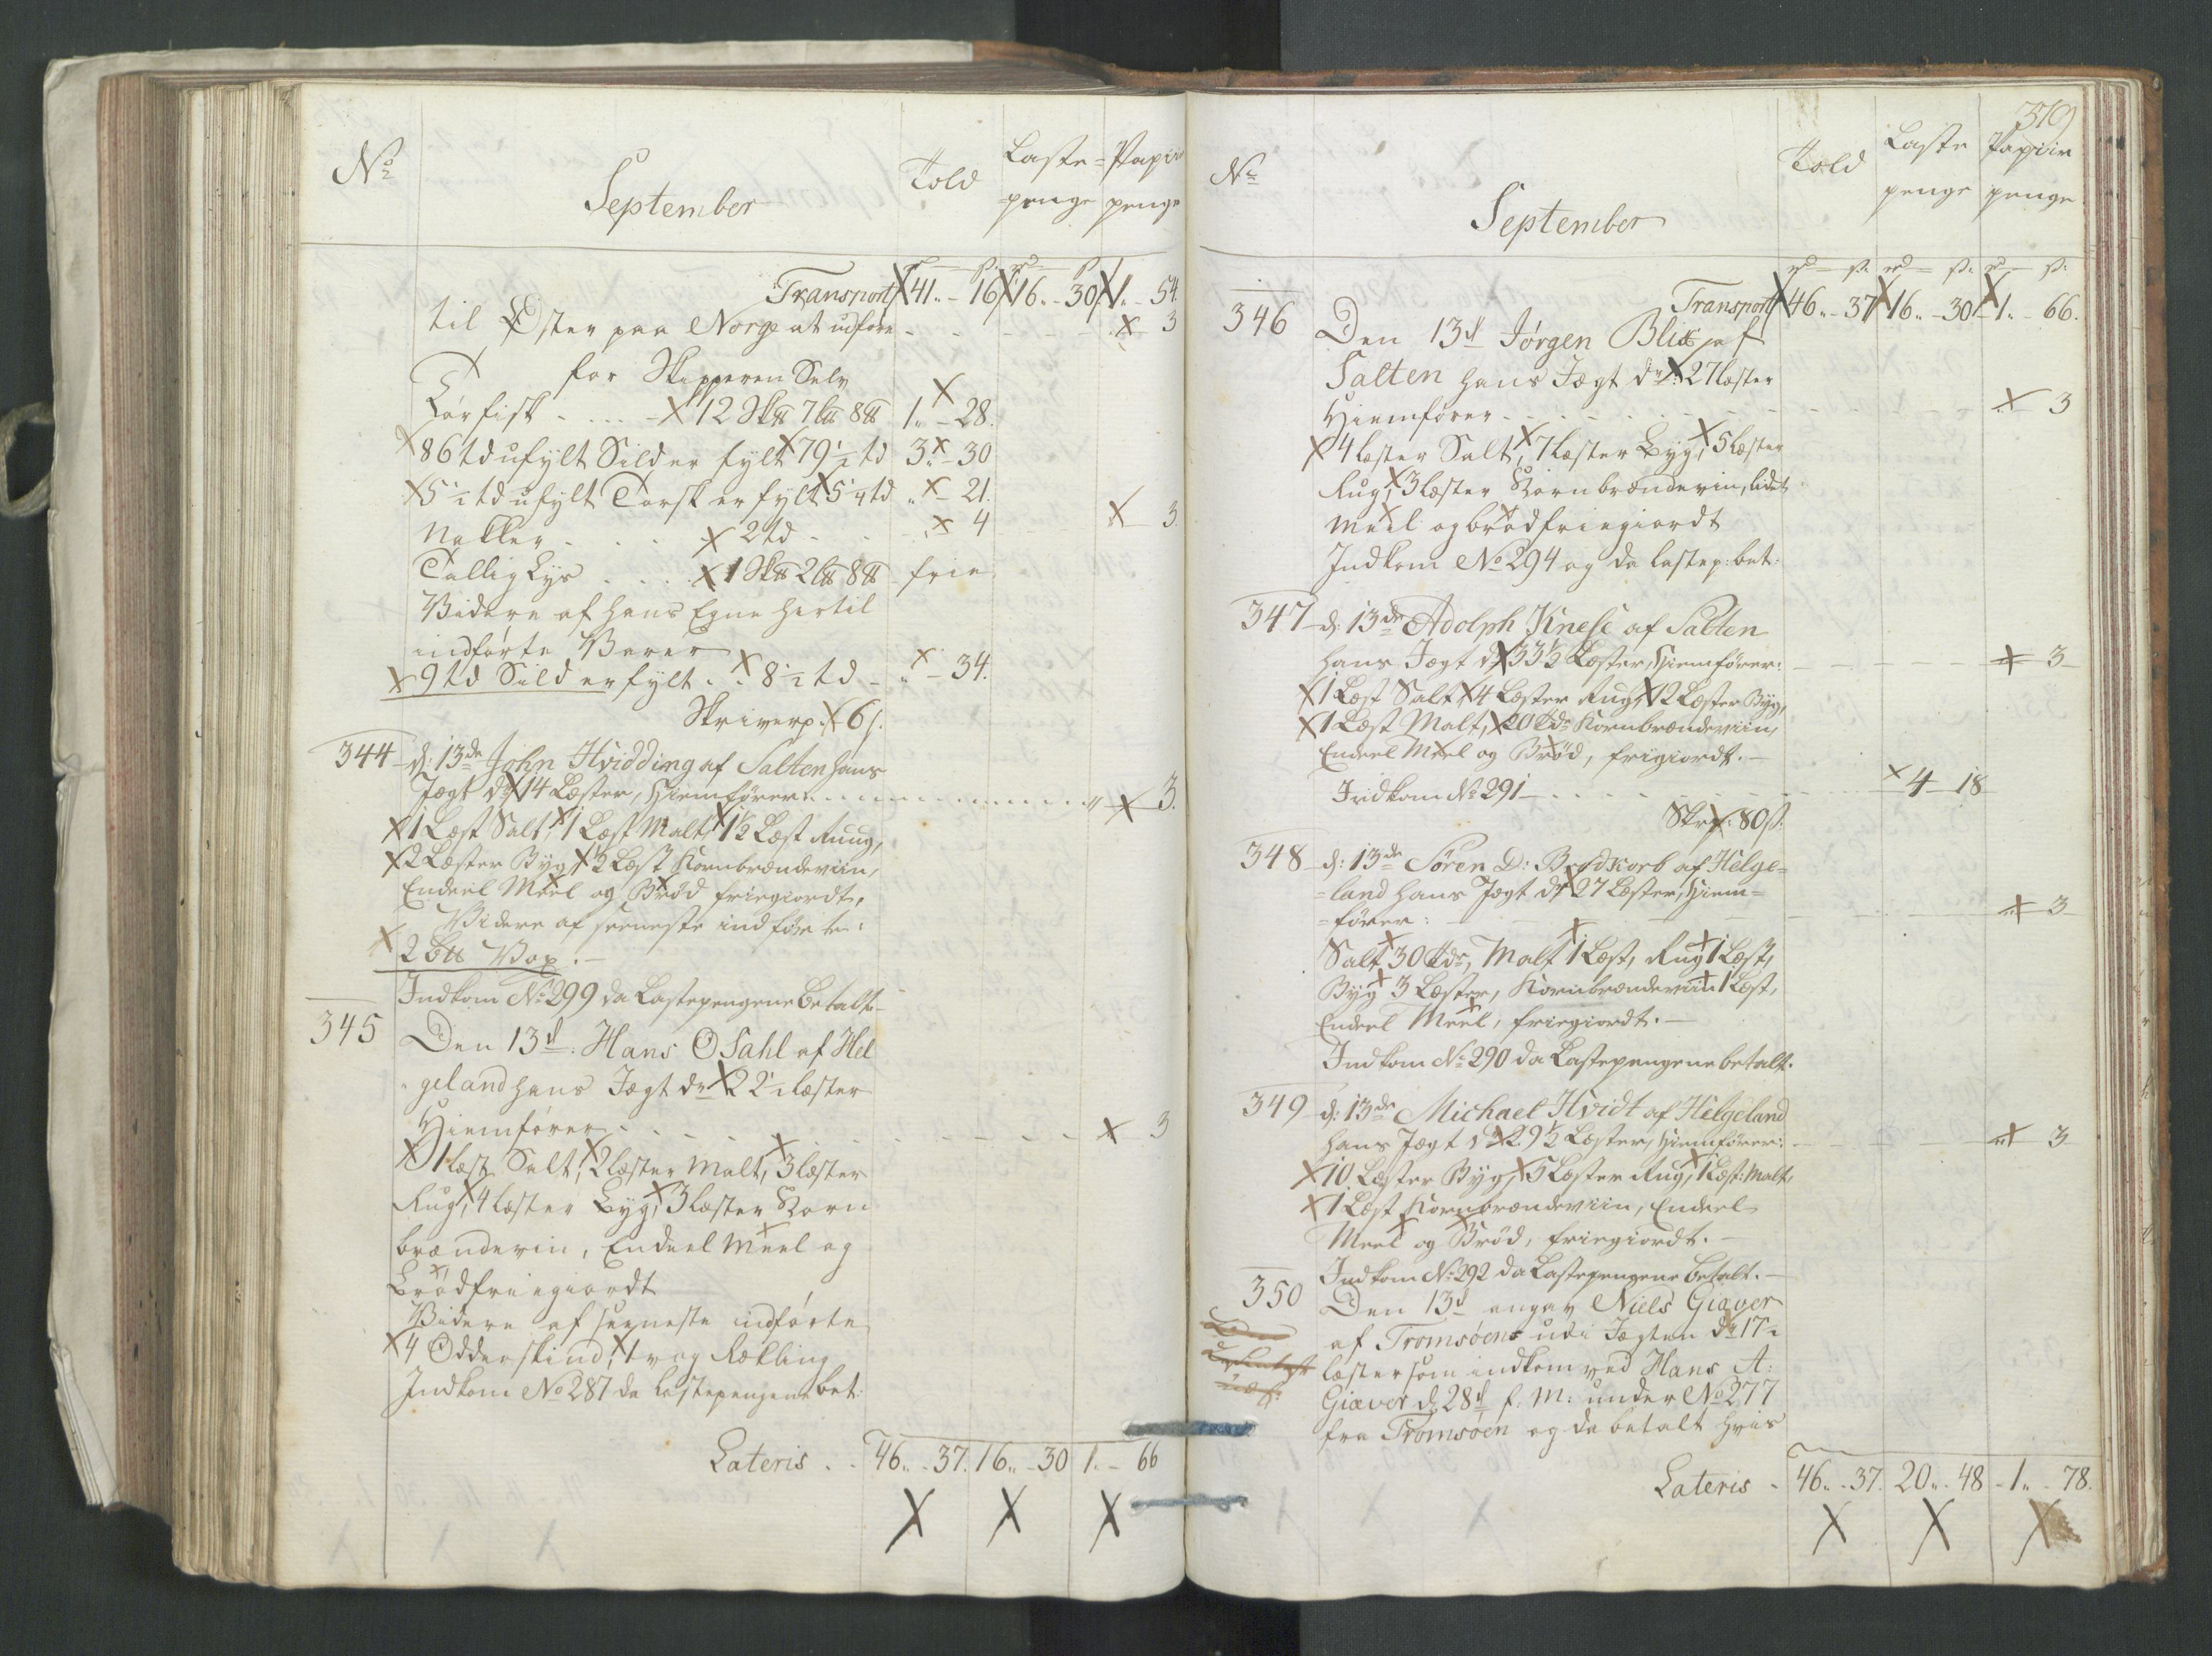 No
September
Told
Laste=
=penge
Papiir
penge
Transport 41.. - 16 16.. - 30 1.. - 54.
til Østen paa Norge at udføre - - 3
for Skipperen Selv
Tørfisk - . . . - 12 Sk℔ 7 L℔ 8 ℔ 1.. - 28.
86 td ufylt Sild er fylt 79½ td 3.. - 30
5½ td ufylt Torsk er fylt 5¼ td .. - 21.
Nakker . . . 2 td - - .. - 4 3.
Tallig Lys . . . 1 Sk℔ 2 L℔ 8 ℔ frie
Videre af hans Egne hertil
indførte Varer
9 td Sild er fylt . . 8½ td - .. - 34.
Skriverp. 6 s.
344 d: 13de John Hvidding af Salten hans
Jægt dr. 14 Læster, Hiemfører . . . . . . . . . . 3.
1 Læst Salt, 1 Læst Malt, 1½ Læst Rug,
2 Læster Byg, ½ Læst Kornbrændeviin,
Endeel Meel og Brød friegiordt,
Videre af seeneste indførte:
2 L℔ Vox. -
Indkom No 299 da Lastepengene betalt.
345 Den 13d: Hans O Sahl af Hel
geland hans Jægt dr 22½ læster
Hiemfører . . . . . . 3
1 læst Salt, 2 læster Malt, 3 læster
Rug, 4 læster Byg, 3 læster Korn
brændevin, Endeel Meel og
Brød friegiordt
Videre af seeneste indførte
4 Odderskind, 1 vog Rækling
Indkom No 287 da lastepengene bet:
Lateris . . 46.. - 37. 16.. - 30 1.. - 66
319
No
September
Told
Laste
penge
Papiir
penge
Transport 46.. - 37 16.. - 30 1.. - 66.
346 Den 13d Jørgen Blix af
Salten hans Jægt dr. 27 læster
Hiemfører - . . . . . . 3
4 læster Salt, 7 læster Byg, 5 læster
Rug, 3 læster Kornbrændevin, lidet
Meel og brød friegiordt
Indkom No 294 og da lastep: bet:
347 d: 13de Adolph Knese af Salten
hans Jægt dr 33½ Læster, Hiemfører: - - - - 3
1 Læst Salt, 4 Læster Rug, 12 Læster Byg,
1 Læst Malt, 20 Tdr Kornbrændeviin,
Endeel Meel og Brød, frigiordt. -
Indkom No 291 - . . . . 4 - 18
Skrp: 80 s.
348 d: 13de Søren D: Brodkorb af Helge=
=land hans Jægt dr 27 Læster, Hiem=
=fører: - - - 3
Salt 30 Tdr, Malt 1 Læst, Rug 1 Læst,
Byg 3 Læster, Kornbrændeviin 1 Læst,
Endeel Meel, friegiordt. -
Indkom No 290 da Lastepengene betalt.
349 d: 13de Michael Hvidt af Helgeland
hans Jægt dr 29½ Læster, Hiemfører: - - - 3
10 Læster Byg, 5 Læster Rug, 1 Læst: Malt,
1 Læst Kornbrændeviin, Endeel
Meel og Brød, friegiordt. -
Indkom No 292 da Lastepengene betalt. -
350 Den 13d angav Niels Giæver
af Tromsøen udi Jægten dr 17½
læster som indkom ved Hans A:
Giæver d 28d f: M: under No 277
fra Tromsøen og da betalt hvis
Lateris - 46.. - 37. 20.. - 48 - 1.. - 78.